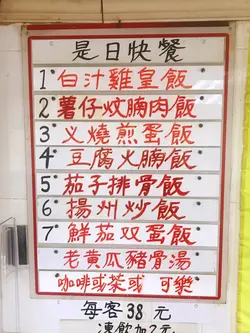 是日快餐
1 白汁雞皇飯
2 薯仔炆腩肉飯
3 义燒煎蛋飯
4 豆腐火腩飯
5 茄子排骨飯
6 揚州炒飯
7 鮮茄双蛋飯
老黄瓜豬骨湯
咖啡或茶或可樂
每客38元
凍飲加2元